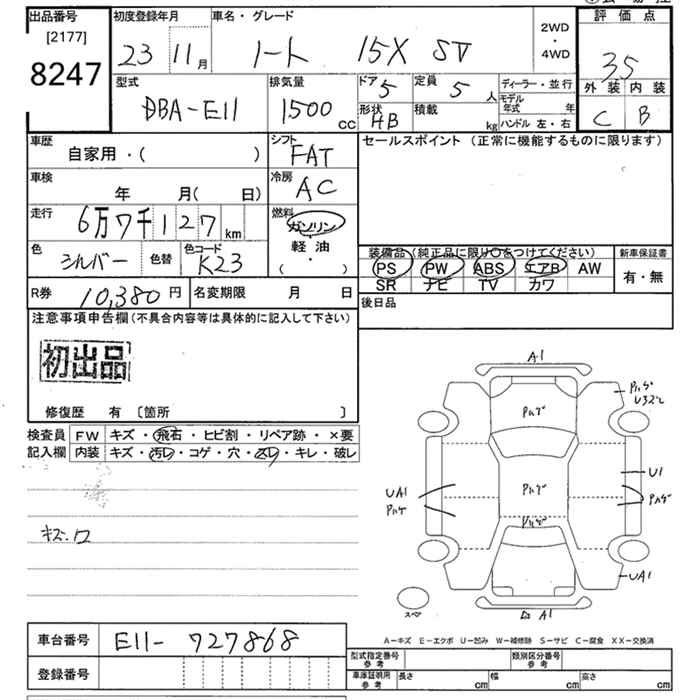 出品番号 初度登録年月 車名・グレード 評価点
[2177] 2WD
8247 23 11月 ノート 15X SV ・4WD 3.5
外装 内装
型式 排気量 ドア 5 定員 5人 ディーラー・並行 C B
DBA-E11 1500cc モデル年式 年
形状 HB 積載 kg ハンドル 左・右
車歴 シフト セールスポイント (正常に機能するものに限ります)
自家用・( ) FAT
車検 冷房
年 月( 日) AC
走行 燃料
6万7千127km ガソリン
・
軽油
色 色コード ( ・ )
シルバー 色替 K23
装備品(純正品に限り○をつけてください) 新車保証書
PS PW ABS エアB AW 有・無
SR ナビ TV カワ
R券 10,380円 名変期限 月 日
後日品
注意事項申告欄(不具合内容等は具体的に記入して下さい)
初出品
修復歴 有 〔箇所 〕
検査員 FW キズ・飛石・ヒビ割・リペア跡・×要
記入欄 内装 キズ・汚レ・コゲ・穴・スレ・キレ・破レ
A1
Pハゲ
Pハゲ
Pハゲ
U1
UA1 Pハゲ Pハゲ
Pハゲ
キズ.ワ
UA1
スペア A1
A-キズ E-エクボ U-凹み W-補修跡 S-サビ C-腐食 XX-交換済
車台番号 E11-727868
型式指定番号 参考 類別区分番号 参考
登録番号
車庫証明用 参考 長さ cm 幅 cm 高さ cm